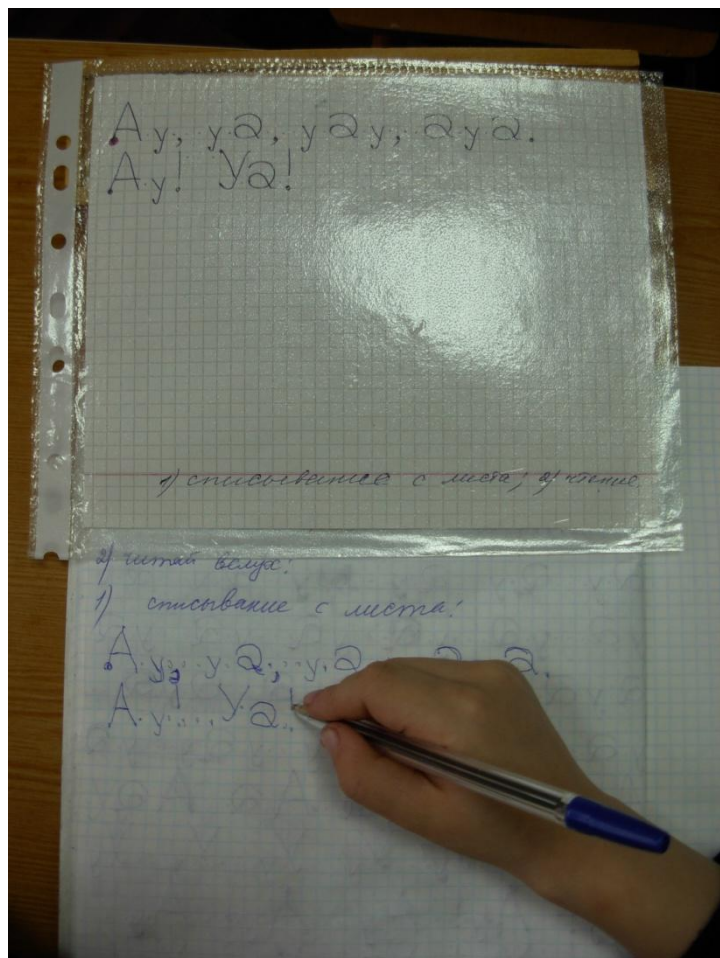 Ау, уа, уау, ауа.
Ау! Уа!
1) списывание с листа; 2) чтение.
2) читай вслух!
1) списывание с листа!
Ау, уа, уа а.
Ау! Уа!